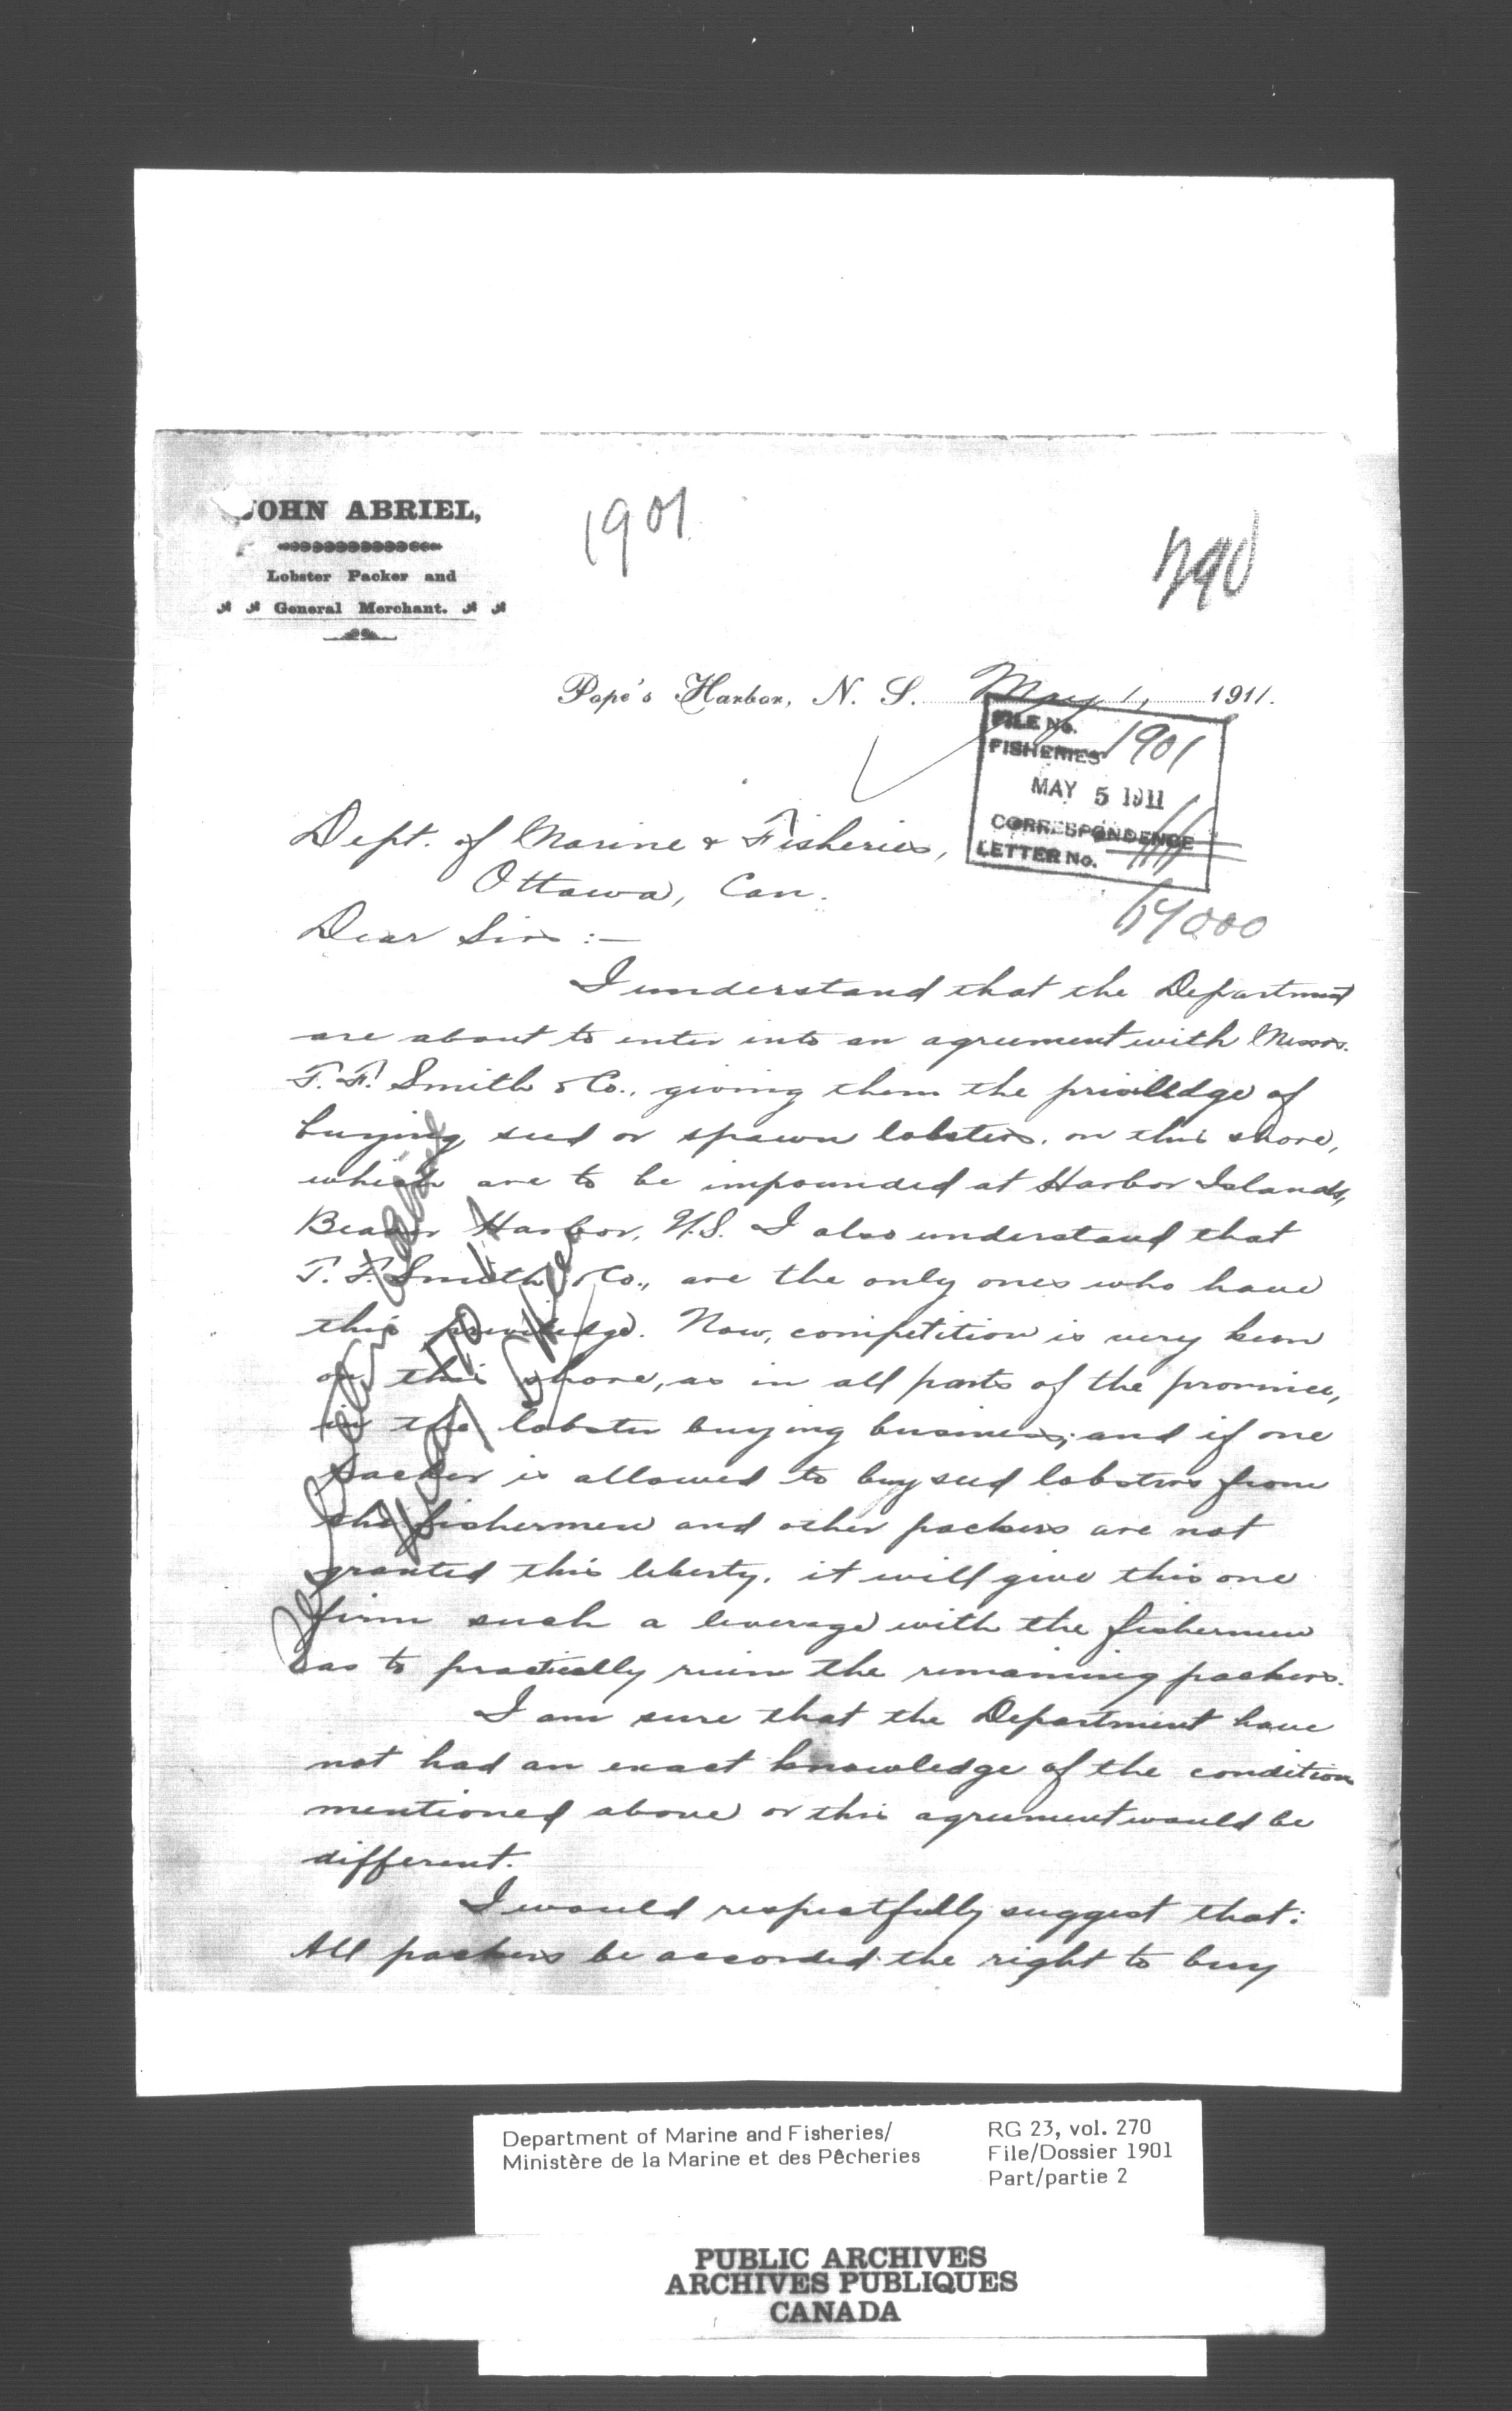 JOHN ABRIEL,
Lobster Packer and
General Merchant.
1901
Pope's Harbor, N. S. May 1, 1911.
FILE No.
FISHERIES 1901
MAY 5 1911
CORRESPONDENCE
LETTER No.
Dept. of Marine & Fisheries,
Ottawa, Can.
Dear Sirs :—
I understand that the Department
are about to enter into an agreement with Messrs.
T. F. Smith & Co., giving them the priviledge of
buying seed or spawn lobsters, on this shore,
which are to be impounded at Harbor Islands,
Beaver Harbor, N.S. I also understand that
T. F. Smith & Co., are the only ones who have
this priviledge. Now, competition is very keen
on this shore, as in all parts of the province,
in the lobster buying business; and if one
packer is allowed to buy seed lobsters from
the fishermen and other packers are not
granted this liberty, it will give this one
firm such a leverage with the fishermen
as to practically ruin the remaining packers.
I am sure that the Department have
not had an exact knowledge of the condition
mentioned above or this agreement would be
different.
I would respectfully suggest that:
All packers be accorded the right to buy
Department of Marine and Fisheries/
Ministère de la Marine et des Pêcheries
RG 23, vol. 270
File/Dossier 1901
Part/partie 2
PUBLIC ARCHIVES
ARCHIVES PUBLIQUES
CANADA